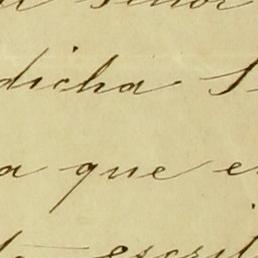 Señor
dicha S
a que e
escrit